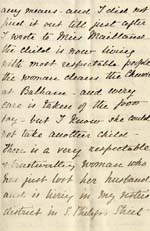 any means - and I did not
find it out till just after
I wrote to Miss Maitland.
the child is now living
with most respectable people
the woman cleans the Church
at Balham - and every
care is taken of the poor
boy - but I know she could
not take another child -
there is a very respectable
& trustworthy woman who
has just lost her husband
and is living in my sisters
district in S. Philips Street